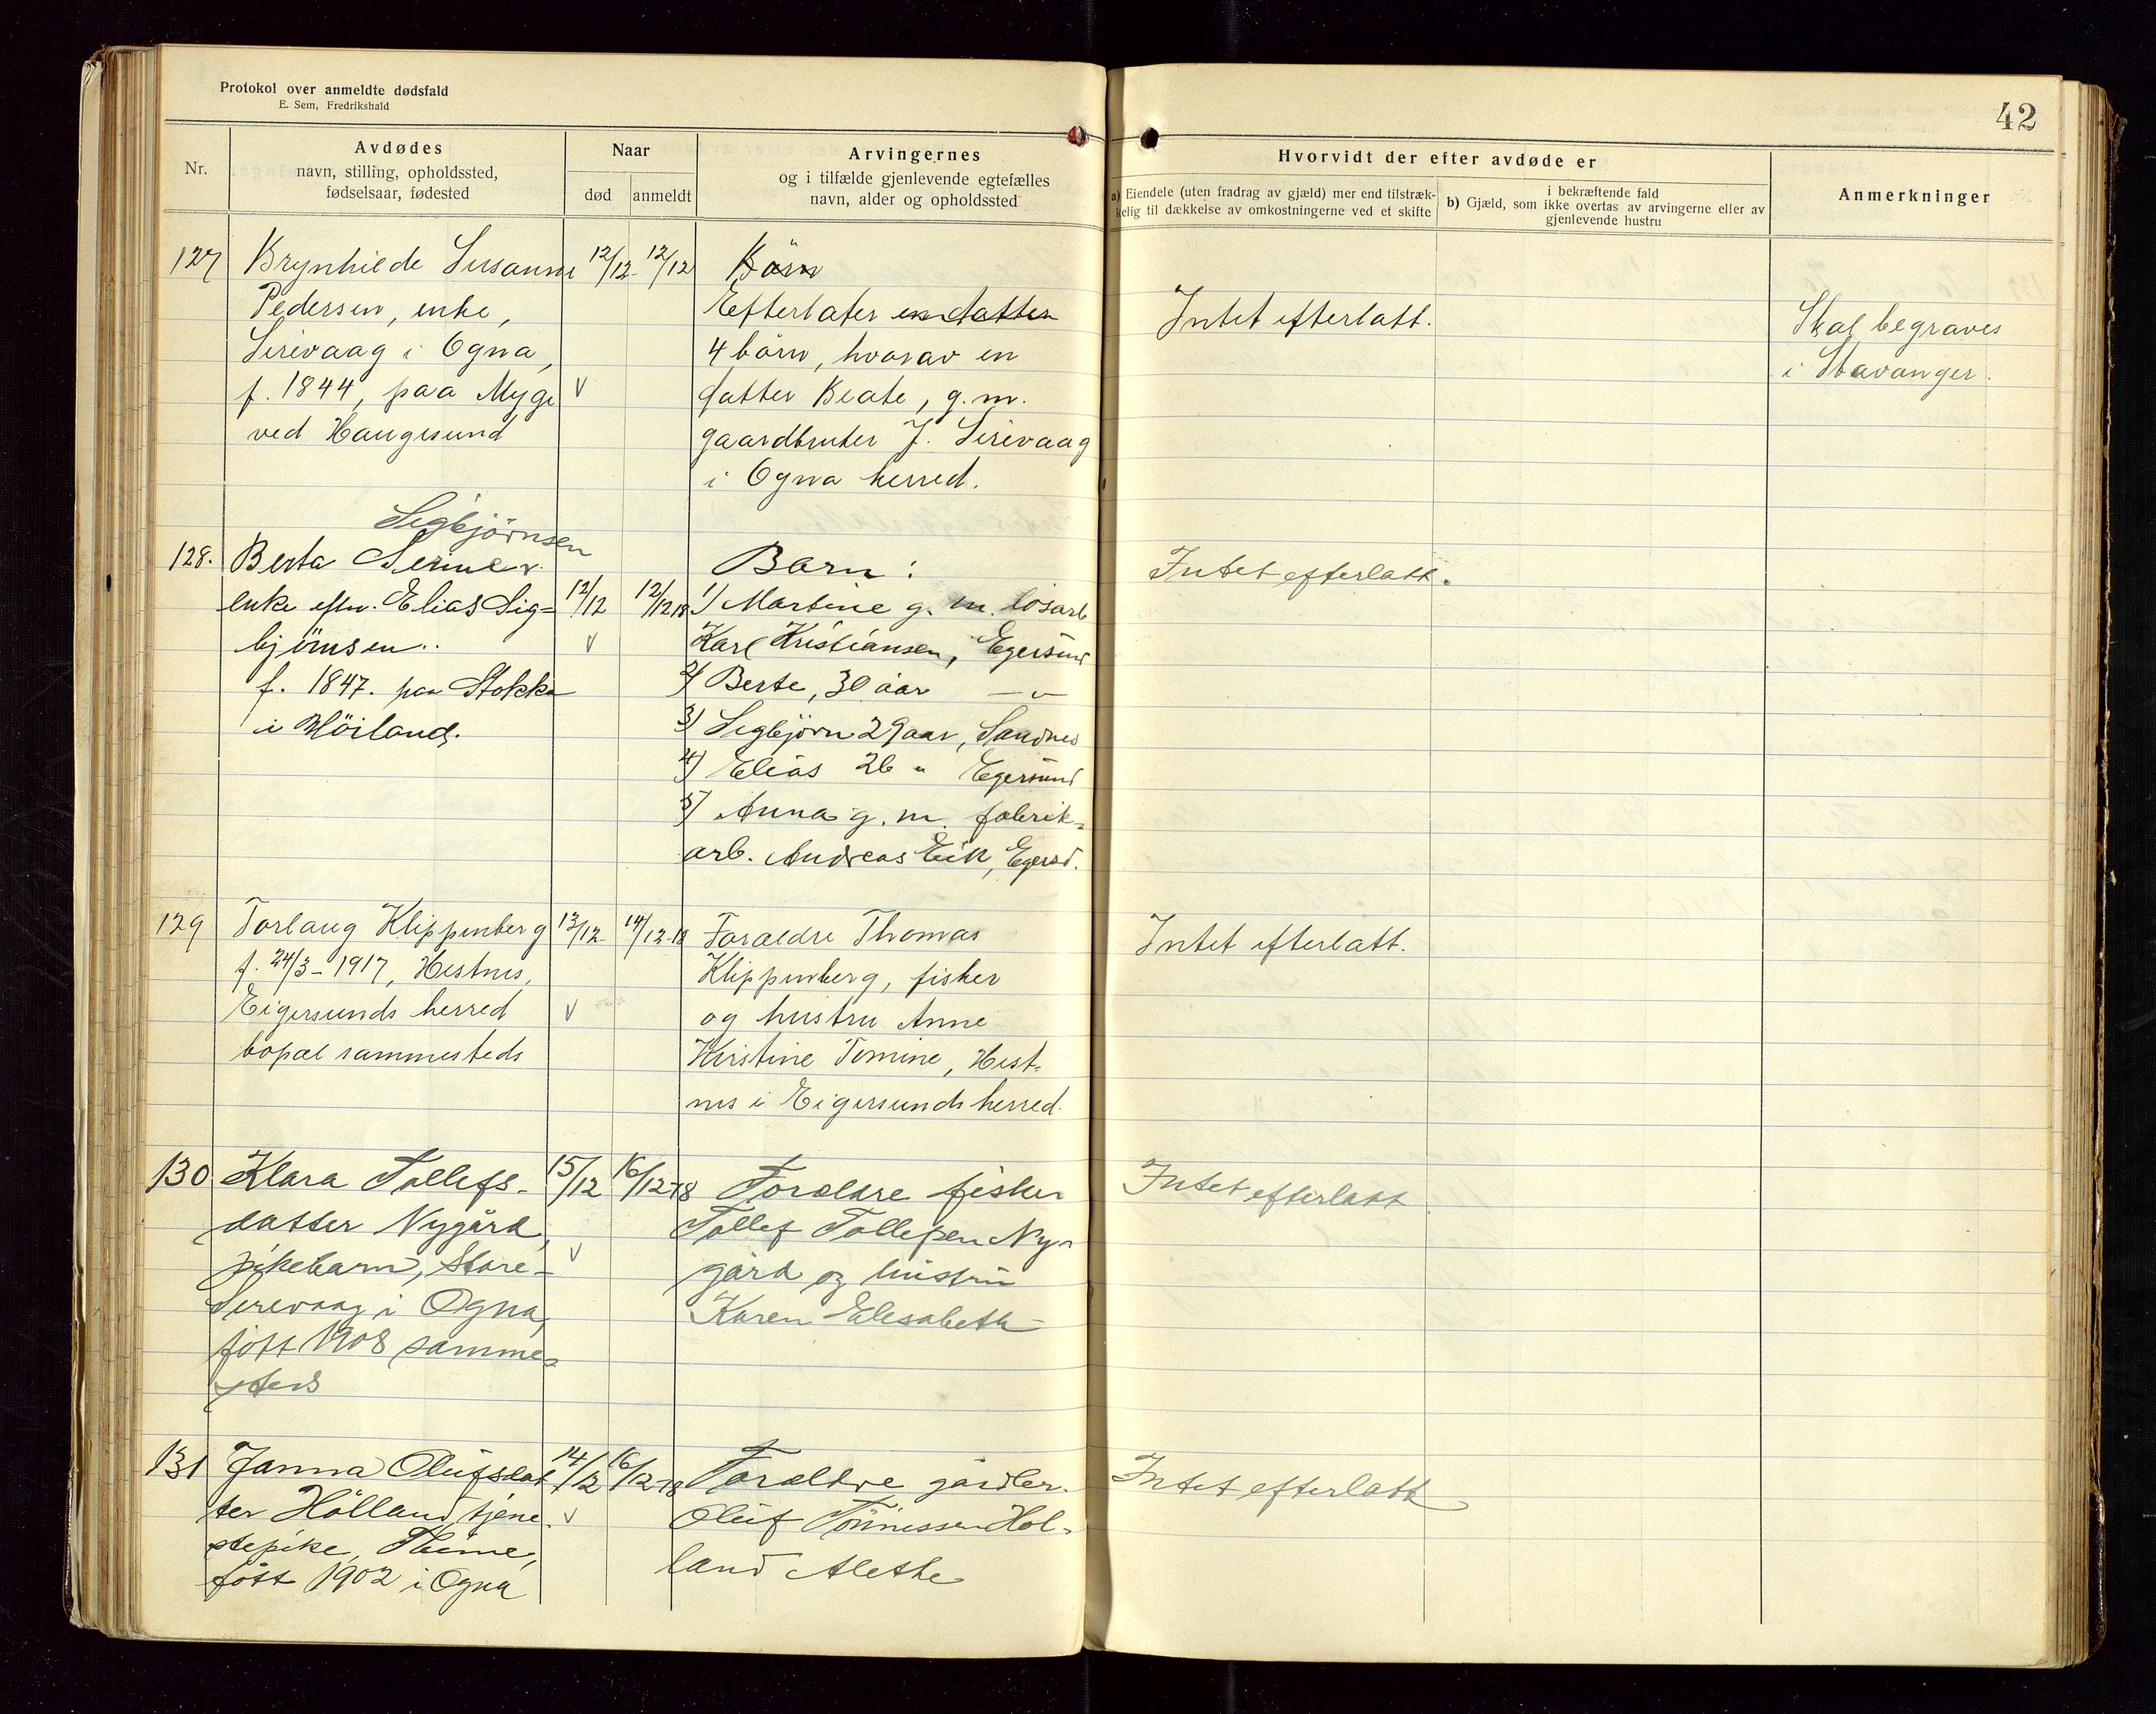 Protokol over anmeldte dødsfald
E. Sem, Fredrikshald
42
Nr.
Avdødes
navn, stilling, opholdssted,
fødselsaar, fødested
Naar
død
anmeldt
Arvingernes
og i tilfælde gjenlevende egtefælles
navn, alder og opholdssted
Hvorvidt der efter avdøde er
a) Eiendele (uten fradrag av gjæld) mer end tilstræk-
kelig til dækkelse av omkostningerne ved et skifte
i bekræftende fald
b) Gjæld, som ikke overtas av arvingerne eller av
gjenlevende hustru
Anmerkninger
127
Brynhilde Susanne
Pedersen, enke,
Sirevaag i Ogna,
f. 1844, paa Myge
ved Haugesund
12/12
12/12
Börn
Efterlater en datter
4 börn, hvorav en
datter Beate, g. m.
gaardbruker J. Sirevaag
i Ogna herred.
Intet efterlatt.
Skal begraves
i Stavanger.
Sigbjörnsen
128.
Berta Serine
enke efter Elias Sig=
björnsen..
f. 1847. paa Stokka
i Höiland.
12/12
12/12 18
Barn:
1) Martine g. m. lösarb
Karl Kristiansen, Egersund
2) Berte, 30 aar —"—
3) Sigbjörn 29 aar, Sandnes
4) Elias 26 " Egersund
5) Anna g. m. fabrik=
arb. Andreas Eik, Egersd.
Intet efterlatt.
129
Torlaug Klippenberg
f. 24/3-1917, Hestnes,
Eigersunds herred
bopæl sammesteds
13/12
14/12-18
Foræeldre Thomas
Klippenberg, fisker
og hustru Anne
Kirstine Tomine, Hest-
nes i Eigersunds herred.
Intet efterlatt.
130
Klara Tollefs-
datter Nygård,
pikebarn, Store-
Sirevaag i Ogna,
fött 1908 samme=
steds
15/12
16/12-18
Forældre fisker
Tollef Tollefsen Ny=
gård og hustru
Karen Elisabeth
Intet efterlatt
131
Janna Olufsdat
ter Hölland, tjene
stepike, Thime,
fött 1902 i Ogna
14/12
16/12-18
Forældre gårdbr.
Oluf Tönnessen Höl=
land Alethe
Intet efterlatt